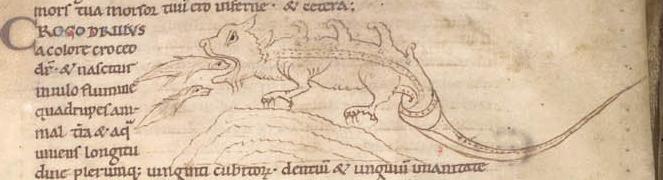 mors tua morsus tuus ero inferne· & cetera;
CROCODRILLUS
a colore croceo
dr̄· & nascitur
in nilo flumine
quadrupes ani-
mal t̄ra & aq̄
uiuens longitu
dine plerumq; uiginti cubitorū· dentiū & unguiū inmanitate